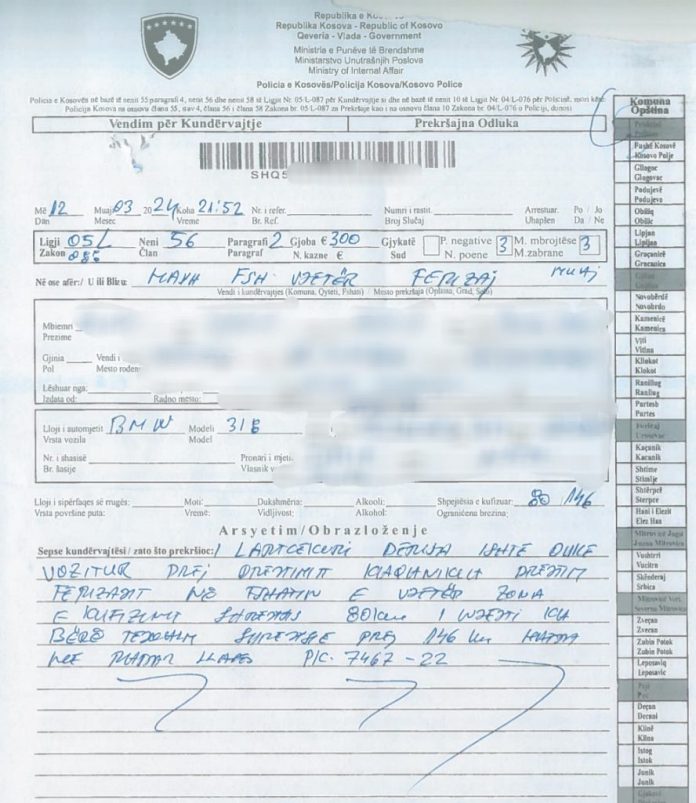 Republika e
Republika Kosova - Republic of Kosovo
Qeveria - Vlada - Government
Ministria e Punëve të Brendshme
Ministarstvo Unutrašnjih Poslova
Ministry of Internal Affair
Policia e Kosovës/Policija Kosova/Kosovo Police
Policia e Kosovës në bazë të nenit 55 paragrafi 4, nenit 56 dhe nenit 58 të Ligjit Nr. 05/L-087 për Kundërvajtje si dhe në bazë të nenit 10 të Ligjit Nr. 04/L-076 për Policinë, mori këtë:
Policija Kosova na osnovu člana 55, stav 4, člana 56 i člana 58 Zakona br. 05/L-087 za Prekršaje kao i na osnovu člana 10 Zakona br. 04/L-076 o Policiji, donosi
Vendim për Kundërvajtje Prekršajna Odluka
SHQ5
Më 12 Muaj 03 2024 Koha 21:52 Nr. i refer. Numri i rastit. Arrestuar. Po / Jo
Dan Mesec Vreme Br. Ref. Broj Slučaj Uhapšen Da / Ne
Ligji 05/L Neni 56 Paragrafi 2 Gjoba € 300 Gjykatë P. negative 3 M. mbrojtëse 3
Zakon 088 Član Paragraf N. kazne € Sud N. poene M. zabrane
MUAJ
Në ose afër:/ U ili Blizu: FSH VJETËR FERIZAJ
Vendi i kundërvajtjes (Komuna, Qyteti, Fshati) / Mesto prekršaja (Opština, Grad, Selo)
Mbiemri
Prezime
Gjinia Vendi i
Pol Mesto rođen
Lëshuar nga:
Izdata od: Radno mesto:
Lloji i automjetit BMW Modeli 318
Vrsta vozila Model
Nr. i shasisë Pronari i mjeti
Br. šasije Vlasnik v
Lloji i sipërfaqes së rrugës: Moti: Dukshmëria: Alkooli: Shpejtësia e kufizuar: 80 /146
Vrsta površine puta: Vreme: Vidljivost: Alkohol: Ograničena brezina:
Arsyetim/Obrazloženje
Sepse kundërvajtësi / zato što prekršioc: I LARTCEKURI DERISA ISHTE DUKE
VOZITUR PREJ DREJTIMIT KAÇANIKUT DREJTIM
FERIZAJT NË FSHATIN E VJETËR ZONA
E KUFIZIMIT SHPEJTËS 80 km I NJEJTI KA
BËRË TEJKALIM SHPEJTSIE PREJ 146 km MATJA
ME P/C. 7467-22
Komuna
Opština
Fushë Kosovë
Kosovo Polje
Gllogoc
Glogovac
Podujevë
Podujevo
Obiliq
Obilic
Lipjan
Lipljan
Graçanicë
Gracanica
Novobërdë
Novobrdo
Kamenicë
Kamenica
Viti
Vitina
Kllokot
Klokot
Ranillug
Ranilug
Partesh
Partes
Ferizaj
Urosevac
Kaçanik
Kacanik
Shtime
Stimlje
Shtërpcë
Sterpce
Hani i Elezit
Elez Han
Mitrovicë Jugu
Juzna Mitrovica
Vushtrri
Vucitrn
Skënderaj
Srbica
Mitrovicë Veri
Severna Mitrovica
Zveçan
Zvecan
Zubin Potok
Zubin Potok
Leposaviq
Leposavic
Peja
Pec
Deçan
Decani
Klinë
Klina
Istog
Istok
Junik
Junik
Gjakovë